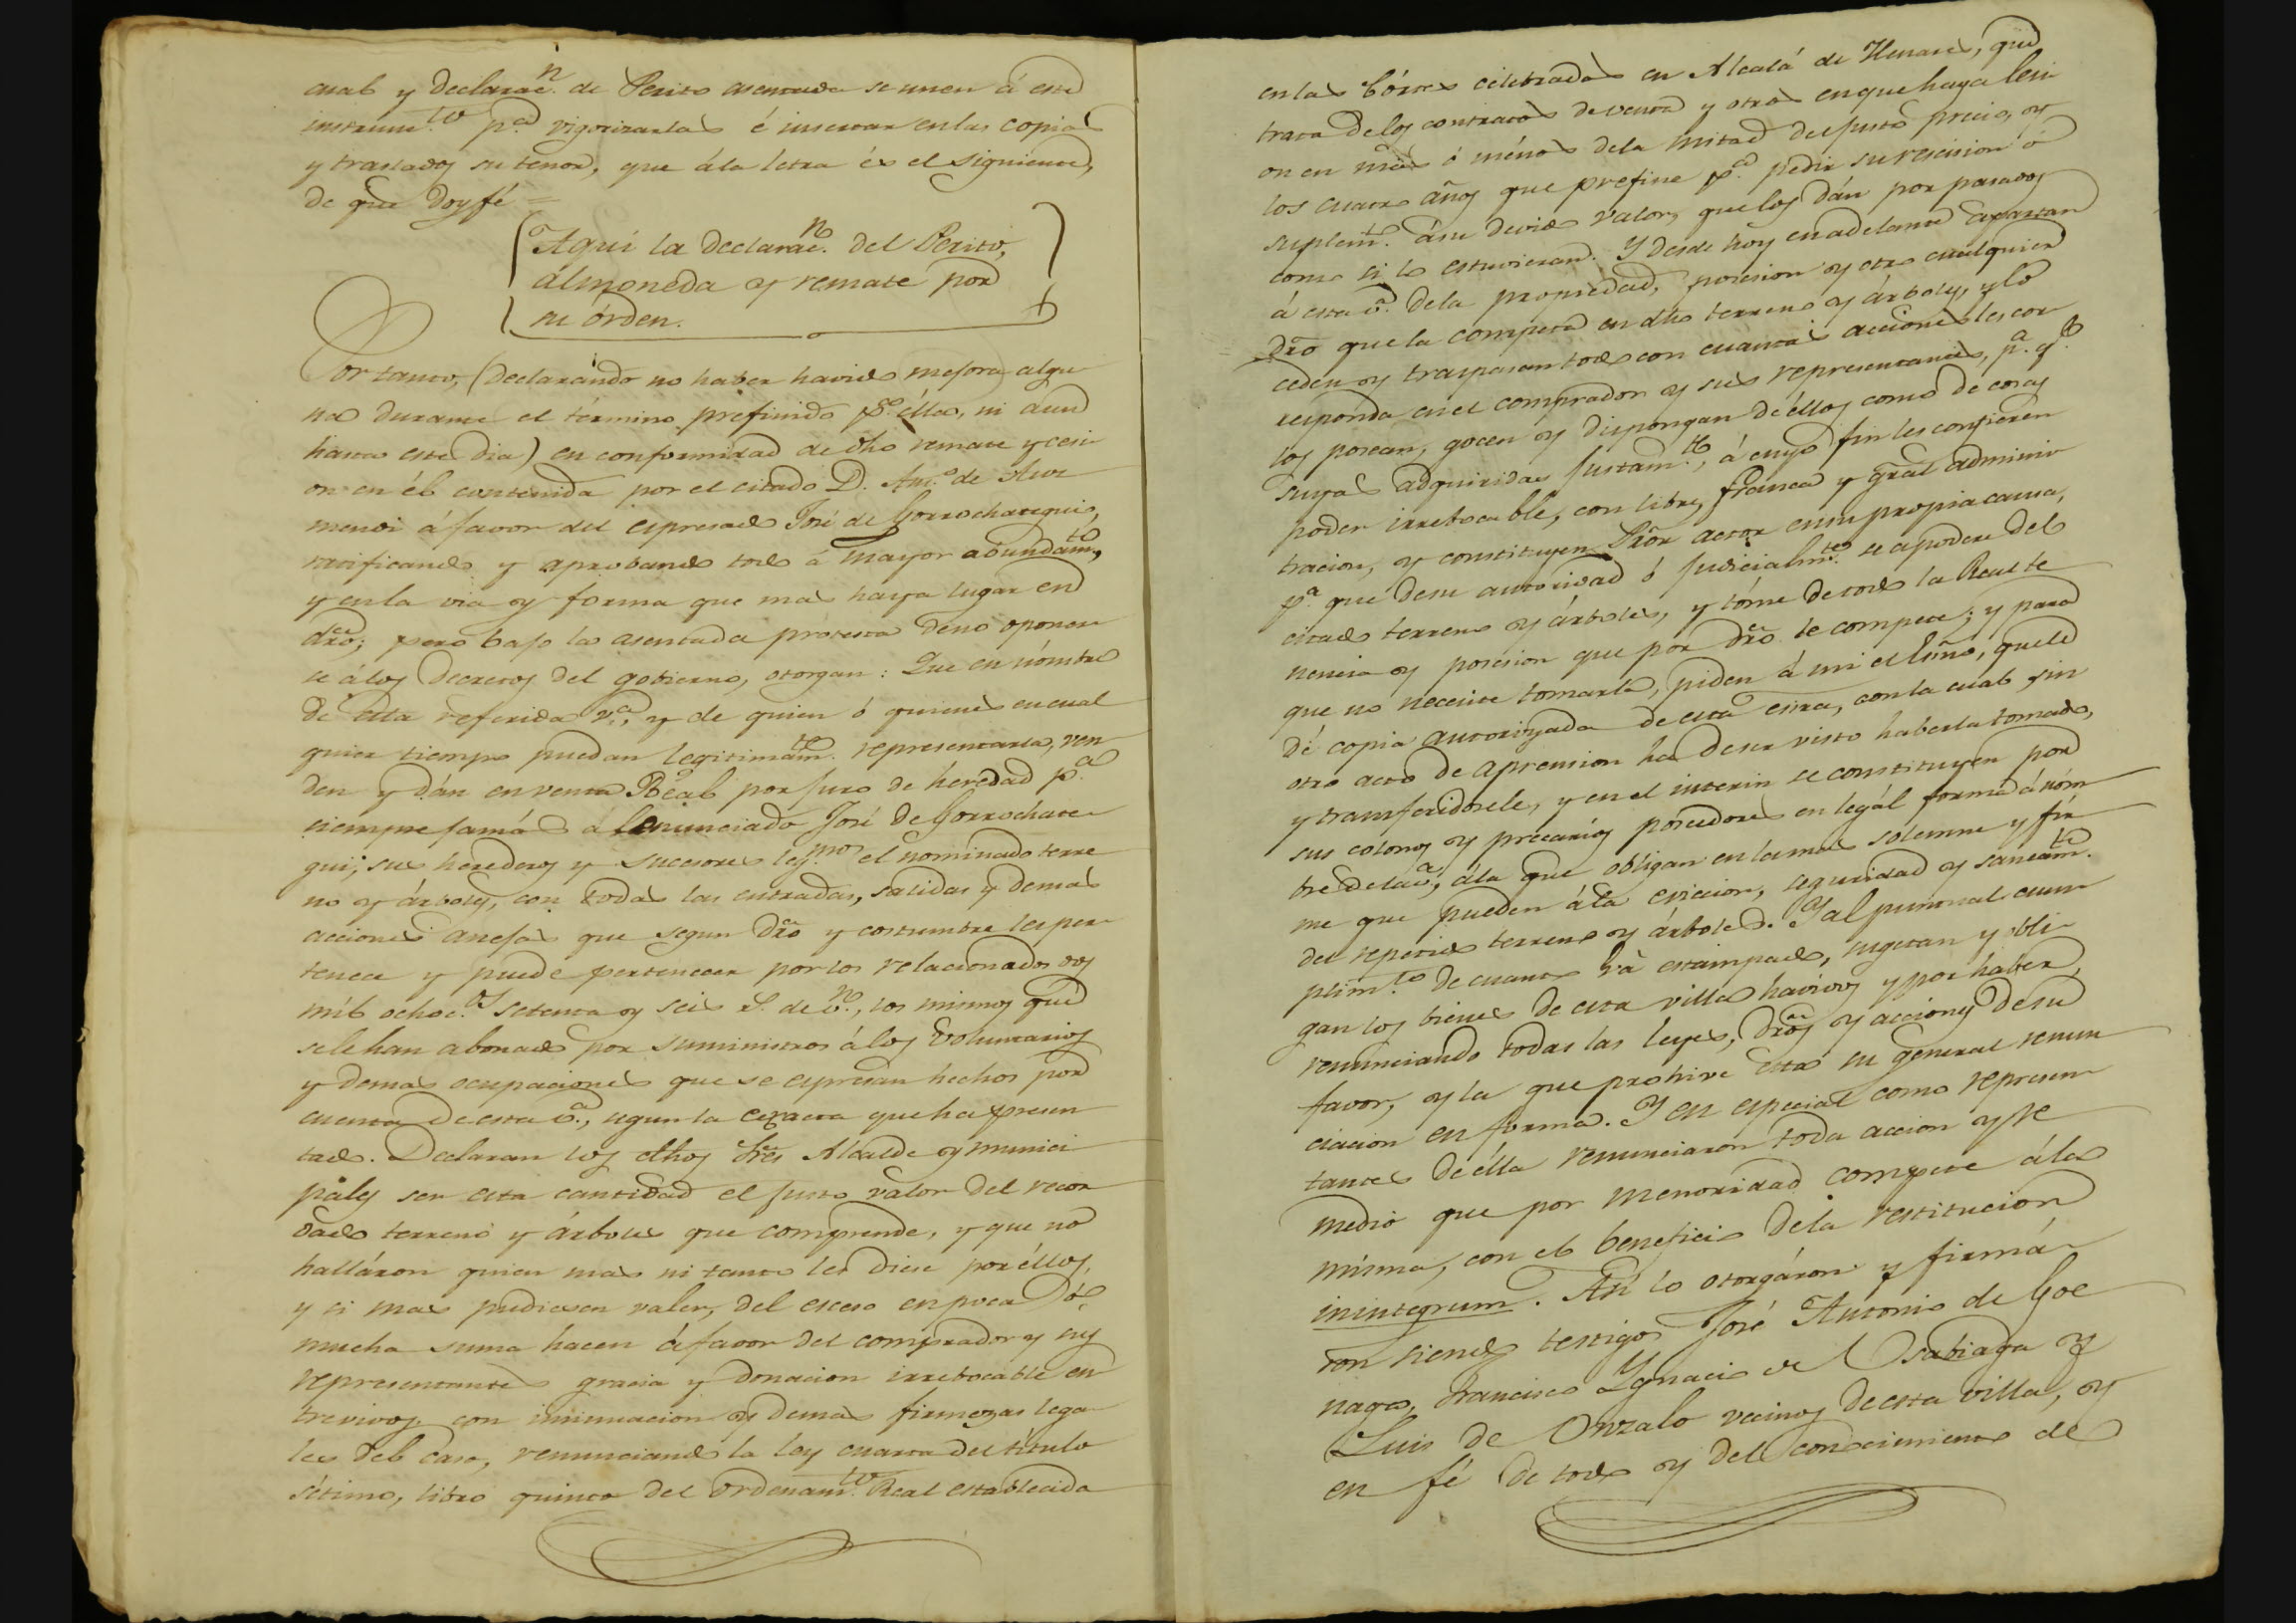 cual y declarac.n de Perito asentada se unen á este
instrum.to p.a vigorizarlas é insertar en las copias
y traslados su tenor, que á la letra és el siguiente,
de que doy fé =
Aquí la declarac.n del Perito,
álmoneda y remate por
su órden.
Por tanto, (declarando no haber havido mejora algu
na durante el término prefinido p.a éllo, ni aun
hasta este dia) en conformidad de dho remate y cesi
on en él contenida por el citado D. Ant.o de
mendi á favor del espresado José de Gorrochategui,
ratificando y aprobando todo á mayor abundam.to,
y en la via y forma que mas haya lugar en
dro; pero bajo la asentada protesta de no oponer
se á los decretos del gobierno, otorgan: Que en nómbre
de esta referida v.a, y de quien ó quienes en cual
quier tiempo puedan legitimam.te representarla, ven
den y dán en venta Real por juro de heredad p.a
siempre jamás á el enunciado José de Gorrochate
gui, sus herederos y sucesores leg.mos el nominado terre
no y árboles, con todas las entradas, salidas y demas
acciones anejas que segun dro y costumbre les per
tenece y puede pertenecer por los relacionados dos
mil ochoc.os setenta y seis r.s de v.n, los mismos que
se le han abonado por suministros á los Voluntarios
y demas ocupaciones que se espresan hechos por
cuenta de esta v.a, segun la exacta que ha presen
tado. Declaran los dhos Sres Alcalde y munici
pales ser esta cantidad el justo valor del recor
dado terreno y árboles que comprende, y que no
halláron quien mas ni tanto les diese por éllos,
y si mas pudiesen valer, del esceso en poca ó
mucha suma hacen á favor del comprador y sus
representantes gracia y donacion irrebocable en
tre vivos con insinuacion y demas firmezas lega
les del caso, renunciando la ley cuarta del título
sétimo, libro quinto del Ordenam.to Real establecida
en las Córtes celebradas en Alcalá de Henares, que
trata de los contratos de venta y otros en que haya lesi
on en mas ó ménos de la mitad del justo precio, y
los cuatro años que prefine p.a pedir su rescision ó
suplem.to á su devido valor, que los dán por pasados
como si lo estuvieran. Y desde hoy en adelante apartan
á esta v.a de la propiedad, posesion y otro cualquier
dro que la competa en dho terreno y árboles, y lo
ceden y traspasan todo con cuantas acciones les cor
responda en el comprador y sus representantes, p.a q.e
los posean, gocen y dispongan de éllos como de cosas
suyas adquiridas justam.te, á cuyo fin les confieren
poder irrebocable, con libre, franca y gral adminis
tracion, y constituyen Prõr actor en su propia causa,
p.a que de su autoridad ó judicialm.te se apodere del
citado terreno y árboles, y tóme de todo la Real te
nencia y posesion que por dro le compete; y para
que no necesite tomarla, piden á mi el Essno, que le
dé copia autorizada de esta essra, con la cual sin
otro acto de aprension ha de ser visto haberla tomado,
y transferidosele, y en el interin se constituyen por
sus colonos y precarios poseedores en legál forma á nóm
bre de la v.a, á la que obligan en la mas solemne y fir
me que pueden á la eviccion, seguridad y saneam.to
del repetido terreno y árboles. Y al puntual cum
plim.to de cuanto vá estampado, sugetan y obli
gan los bienes de esta villa havidos y por haber,
renunciando todas las leyes, dros y acciones de su
favor, y la que prohive esta en general renun
ciacion en forma. Y en especial como represen
tantes de élla renunciaron toda accion y re
medio que por menoridad compete á la
misma, con el beneficio de la restitucion
in integrum. Así lo otorgáron y firmá
ron siendo testigos José Antonio de Goe
naga, Francisco Ygnacio de Osabiaga y
Luis de Onzalo vecinos de esta villa, y
en fé de todo y del conocimiento de